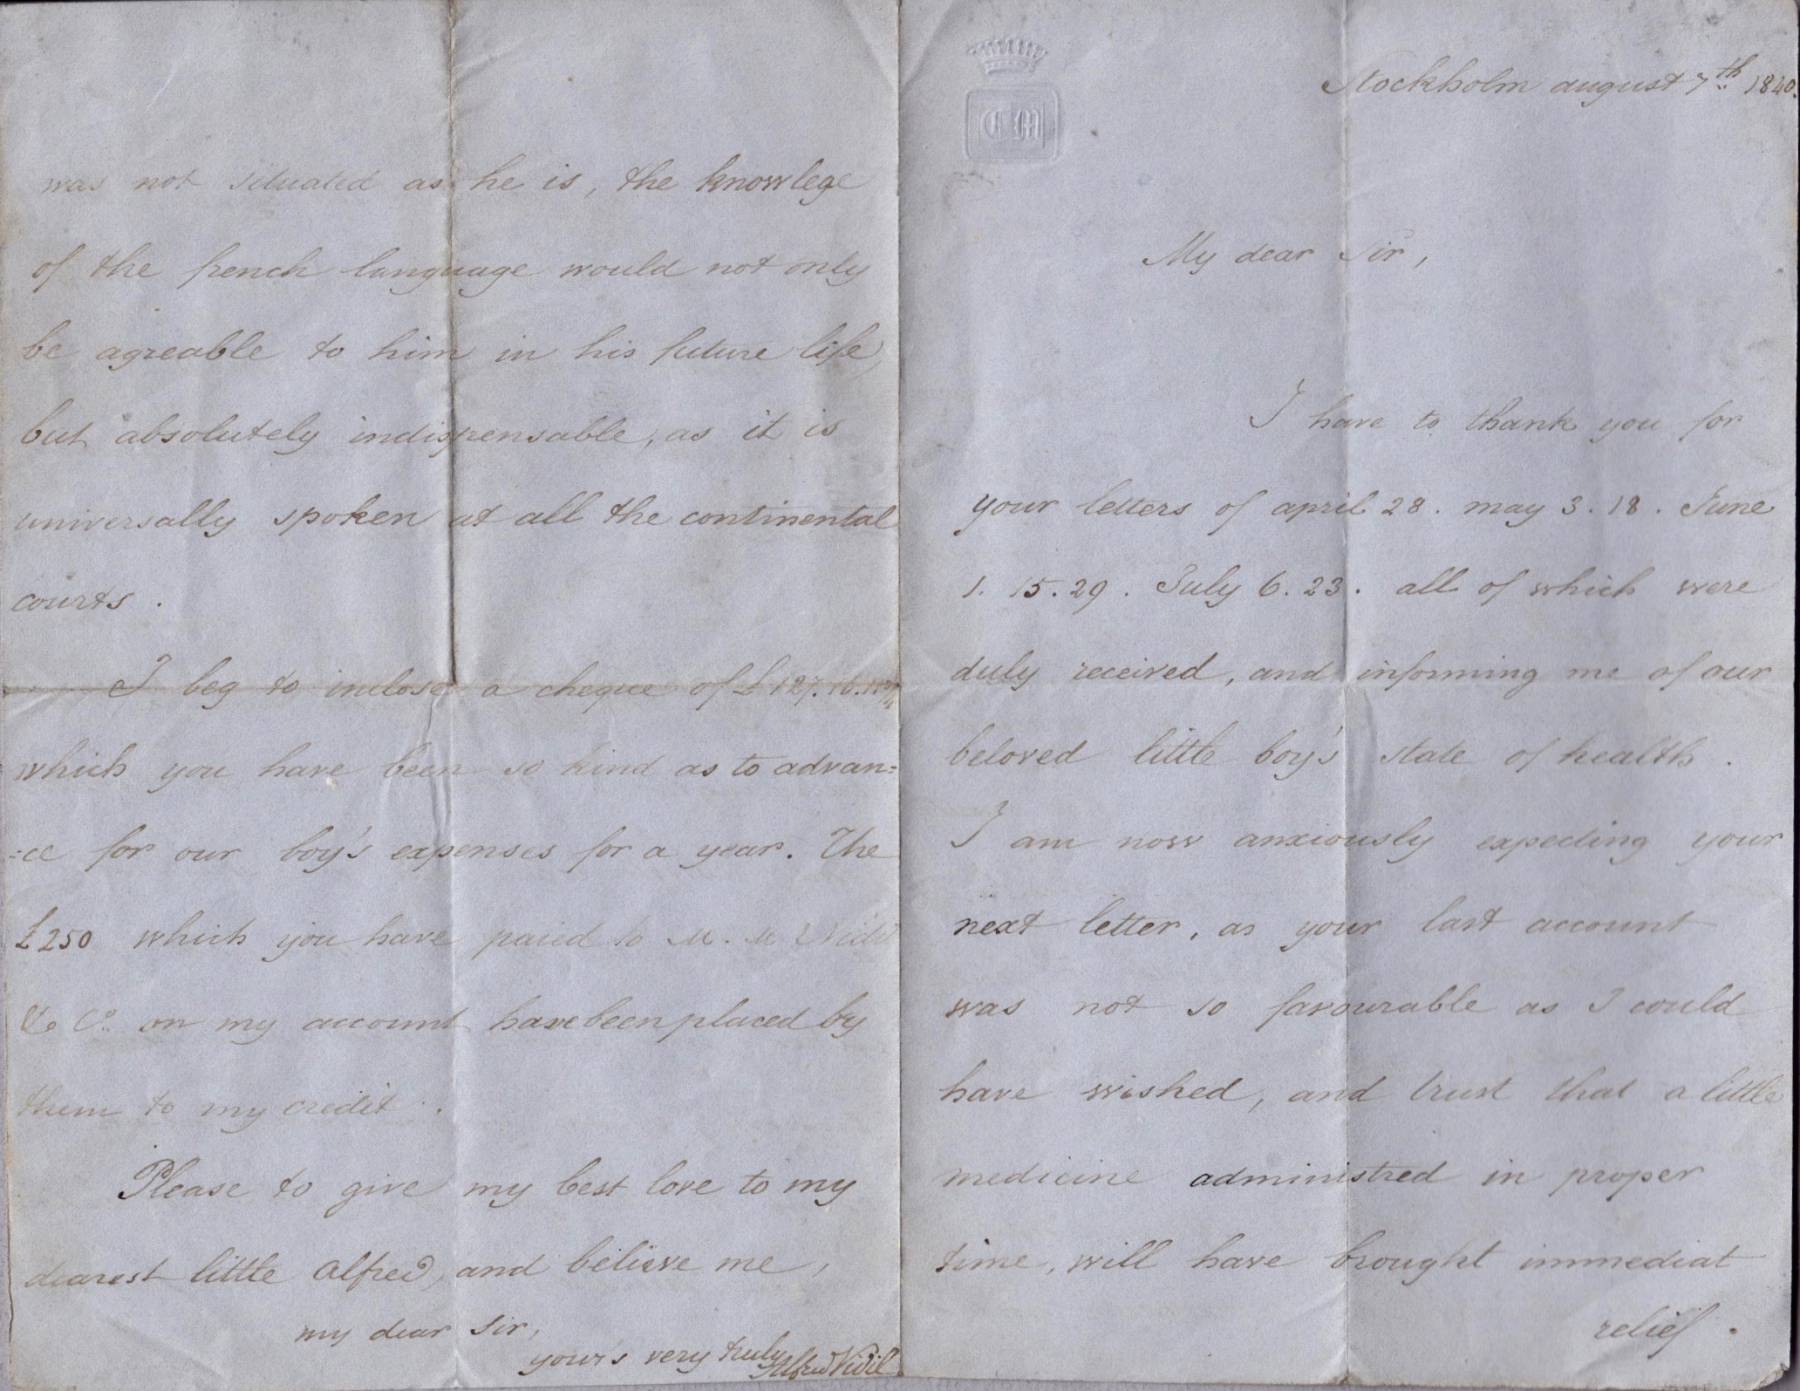 C M
Stockholm august 7th 1840.
My dear Sir,
I have to thank you for
your letters of april 28. may 3. 18. June
1. 15. 29. July 6. 23. all of which were
duly received, and informing me of our
beloved little boy's state of health.
I am now anxiously expecting your
next letter, as your last account
was not so favourable as I could
have wished, and trust that a little
medicine administred in proper
time, will have brought immediat
relief.
was not situated as he is, the knowlege
of the french language would not only
be agreable to him in his future life,
but absolutely indispensable, as it is
universally spoken at all the continental
courts.
I beg to inclose a cheque of £127.16.
which you have been so kind as to advan=
=ce for our boy's expenses for a year. The
£250 which you have paied to M. M
& Co. on my account have been placed by
them to my credit.
Please to give my best love to my
dearest little Alfred, and believe me,
my dear Sir,
your's very truly
Alfred Vidil